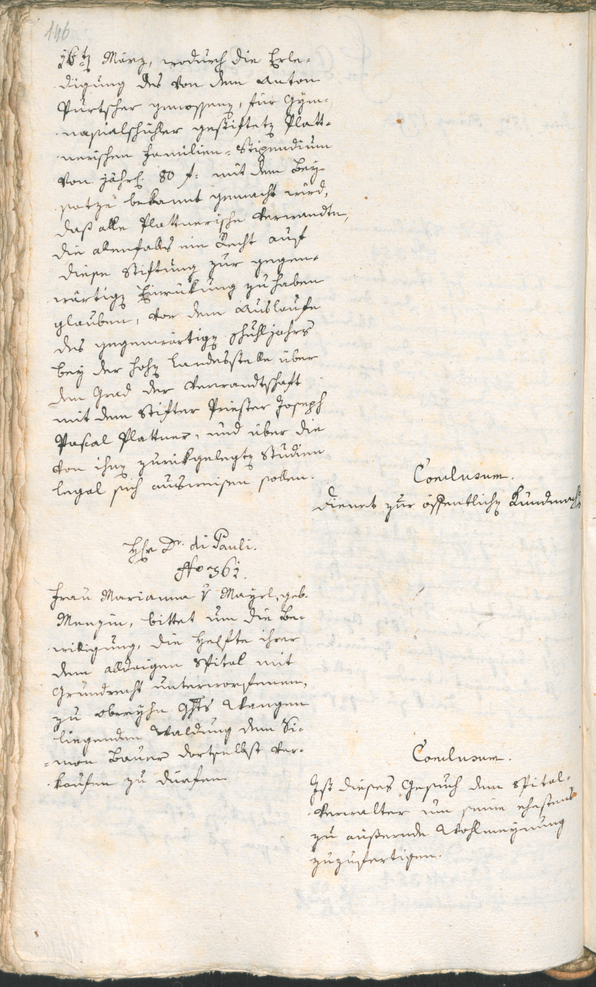 146
16t. März, wodurch die Erle-
digung des von dem Anton
Purtscher genossenen, für Gym-
nasialschüler gestifteten Platt-
nerischen Familien-Stipendium
von jährl. 80 f. mit dem Bey-
satze bekannt gemacht wird,
daß alle Plattnerische Verwandte,
die allenfalls ein Recht auf
diese Stiftung zur gegen-
wärtigen Einrükung zu haben
glauben, vor dem Auslaufe
des gegenwärtigen Schuljahrs
bey der hohen Landesstelle über
den Grad der Verwandtschaft
mit dem Stifter Priester Joseph
Pascal Plattner, und über die
von ihnen zurükgelegten Studien
legal sich ausweisen sollen.
Conclusum.
Dienet zur öffentlichen Kundmach
Hr. Dr. di Pauli.
No 361.
Frau Marianna v Mayrl, geb.
Menzin, bittet um die Be-
willigung, die Helfte ihrer
dem alldaigen Spital mit
Grundrecht unterworfenen,
zu Oberyhn Ghts Wangen
liegenden Waldung dem Si-
mon Bauer dortselbst ver-
kaufen zu dürfen
Conclusum.
Ist dieses Gesuch dem Spital-
verwalter um seine ehestens
zu äußernde Wohlmeynung
zuzufertigen.